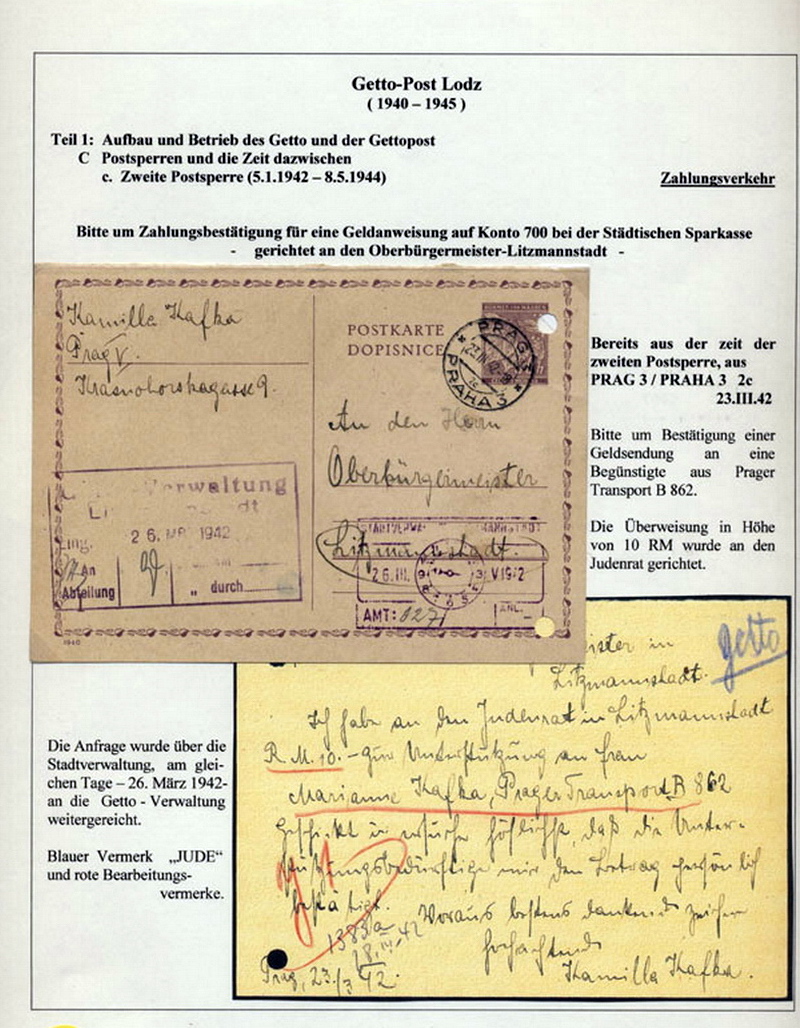 Getto-Post Lodz
( 1940 – 1945 )
Teil 1: Aufbau und Betrieb des Getto und der Gettopost
C Postsperren und die Zeit dazwischen
c. Zweite Postsperre (5.1.1942 – 8.5.1944)
Zahlungsverkehr
Bitte um Zahlungsbestätigung für eine Geldanweisung auf Konto 700 bei der Städtischen Sparkasse
- gerichtet an den Oberbürgermeister-Litzmannstadt -
Kamilla Kafka
Prag V.
Krasnohorskagasse 9.
POSTKARTE
DOPISNICE
PRAG 3
PRAHA 3
An den Herrn
Oberbürgermeister
Litzmannstadt.
rwaltung
26. 1942
An
Abteilung
„ durch
26.III.
AMT: 027
1940
Bereits aus der zeit der
zweiten Postsperre, aus
PRAG 3 / PRAHA 3 2c
23.III.42
Bitte um Bestätigung einer
Geldsendung an eine
Begünstigte aus Prager
Transport B 862.
Die Überweisung in Höhe
von 10 RM wurde an den
Judenrat gerichtet.
Die Anfrage wurde über die
Stadtverwaltung, am glei-
chen Tage – 26. März 1942-
an die Getto - Verwaltung
weitergereicht.
Blauer Vermerk „JUDE“
und rote Bearbeitungs-
vermerke.
getto
ister in
Litzmannstadt.
Ich habe an den Judenrat in Litzmannstadt
R.M. 10.- zur Unterstützung an Frau
Marianne Kafka, Prager Transport B 862
geschickt u. ersuche höflichst, daß die Unter-
stützungsbedürftige mir den Betrag persönlich
bestätigt. Voraus bestens dankend zeichne
hochachtend
Prag, 23./3 42. Kamilla Kafka.